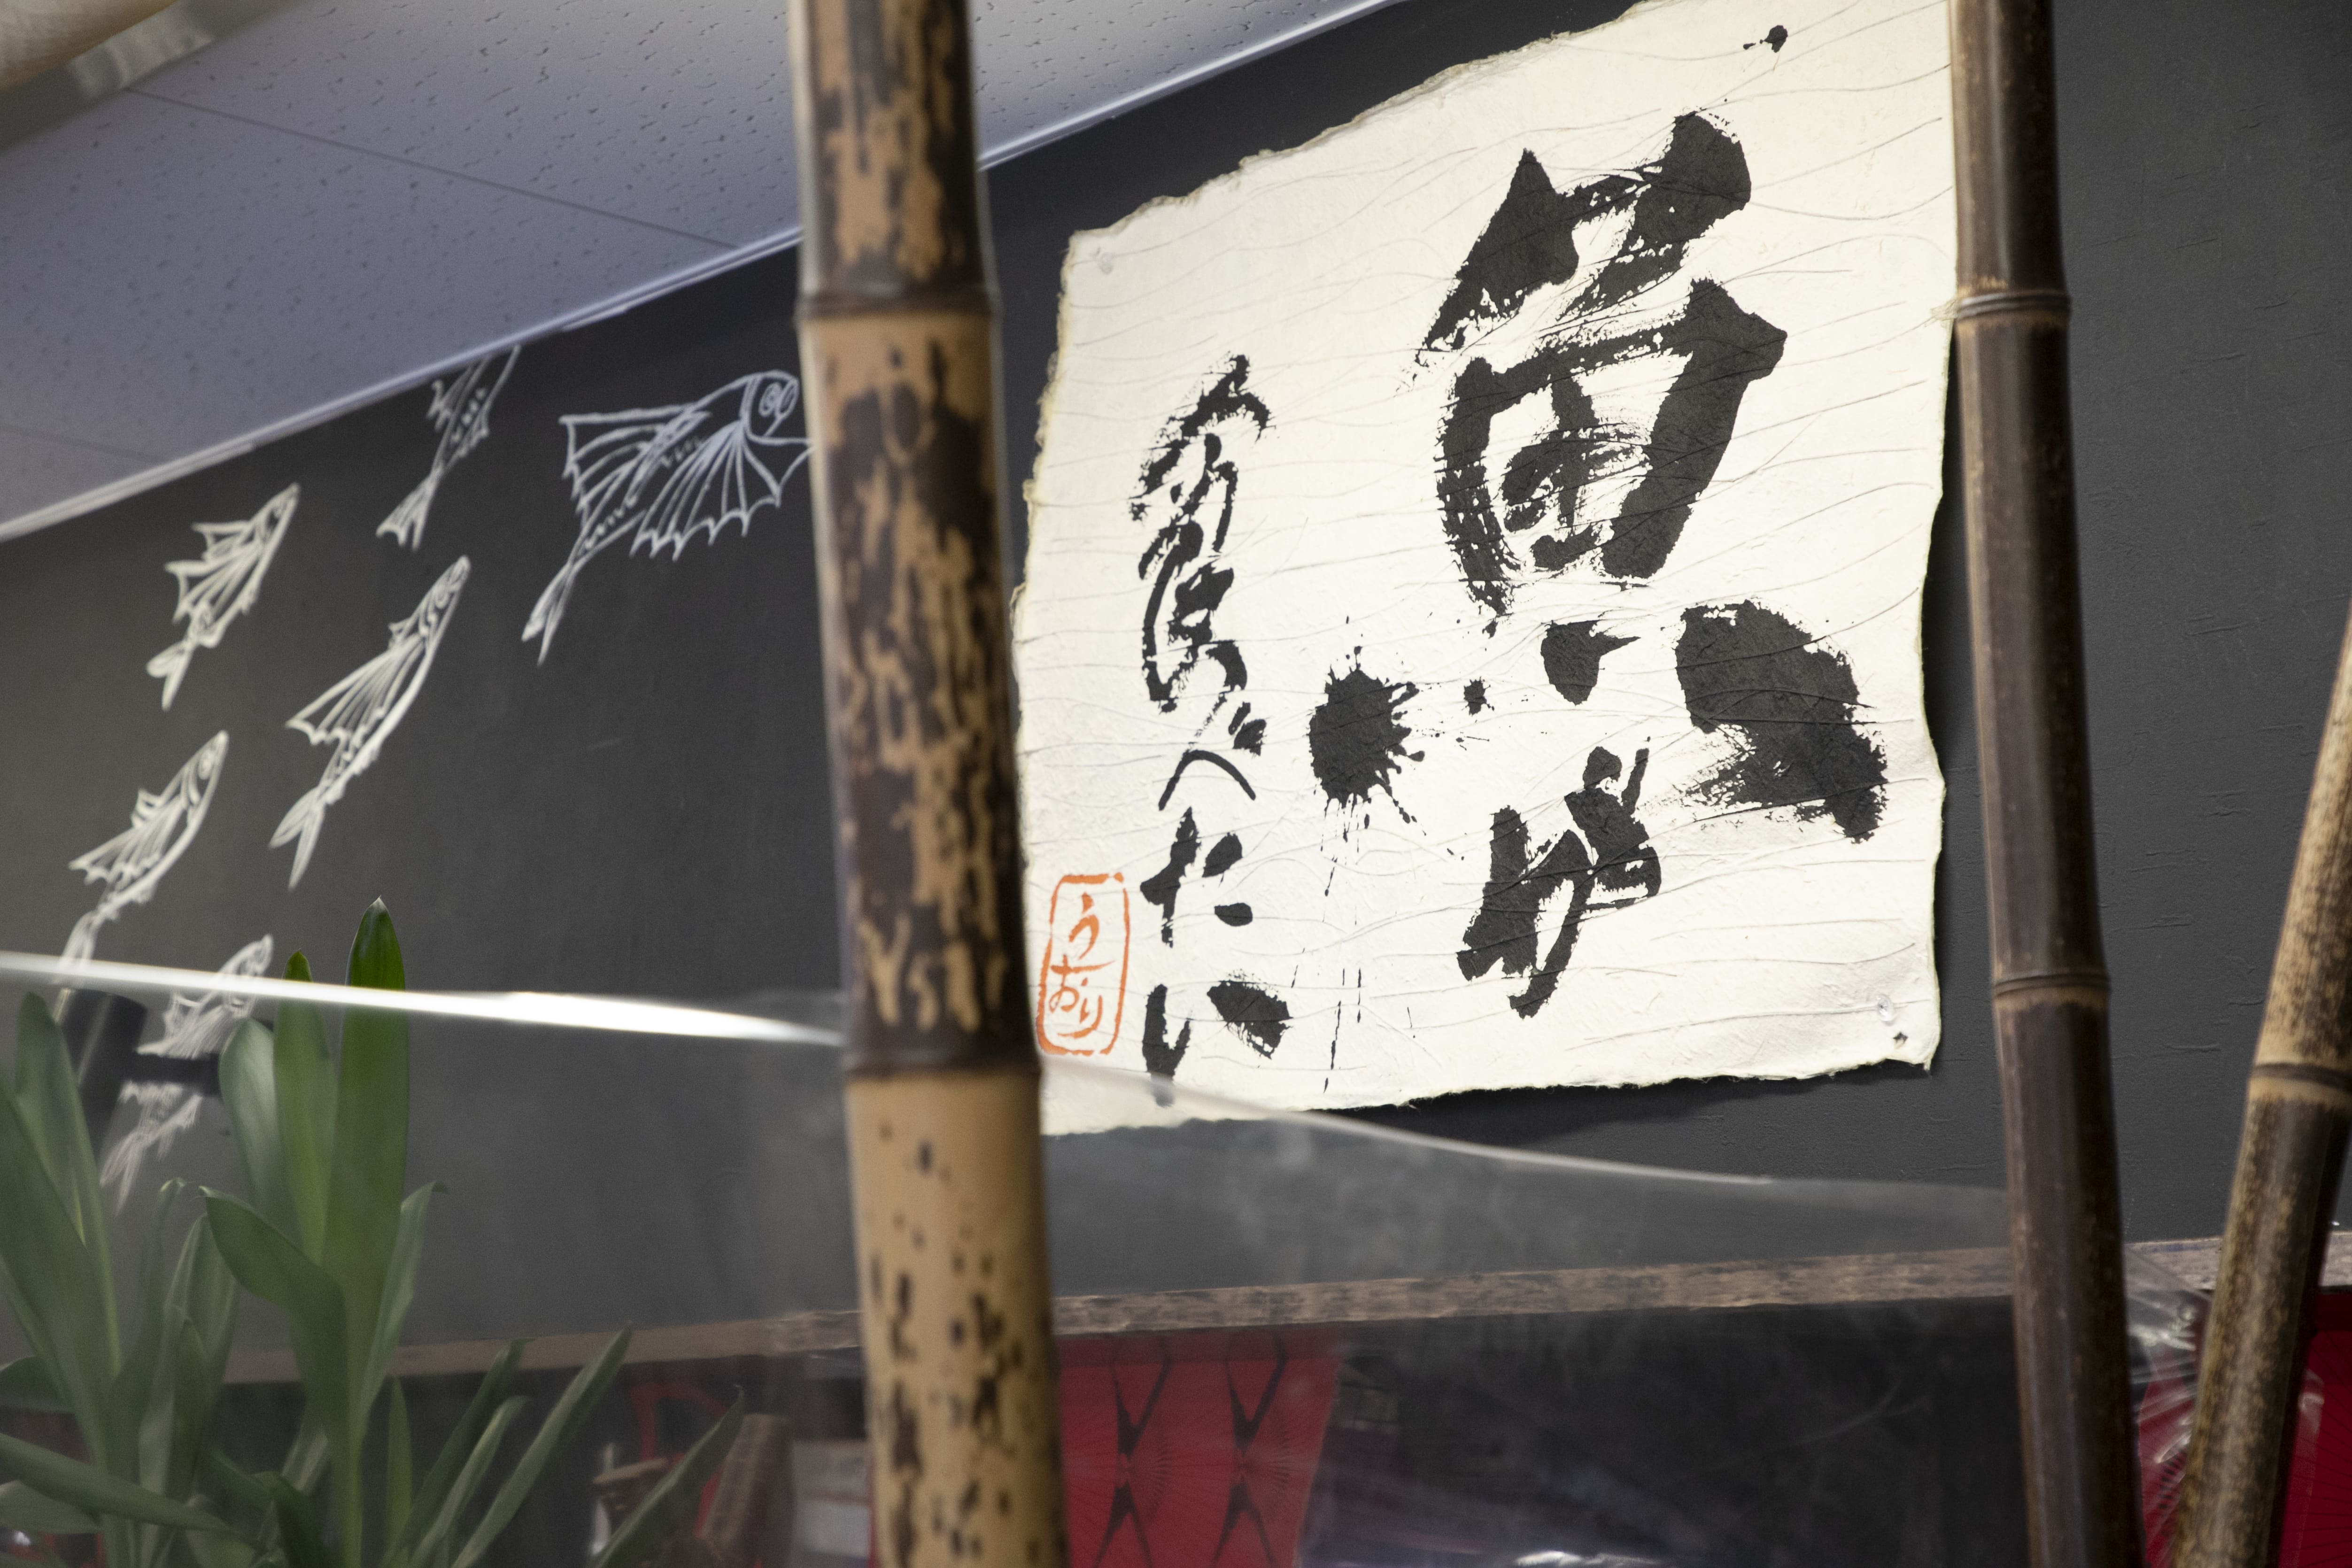 魚が
食べたい
うおり